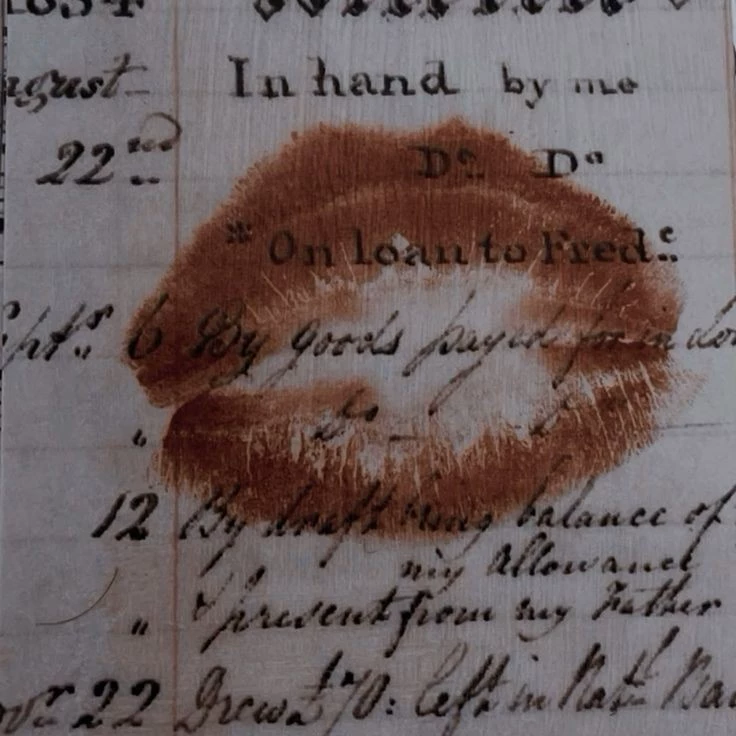 1834
August
In hand by me
22nd Do Do
* On loan to Fredc
Septr 6 By goods payed for in
" Do
12 By draft being balance of
my allowance
" & present from my Father
22 Drew £70: left in Natl Ba